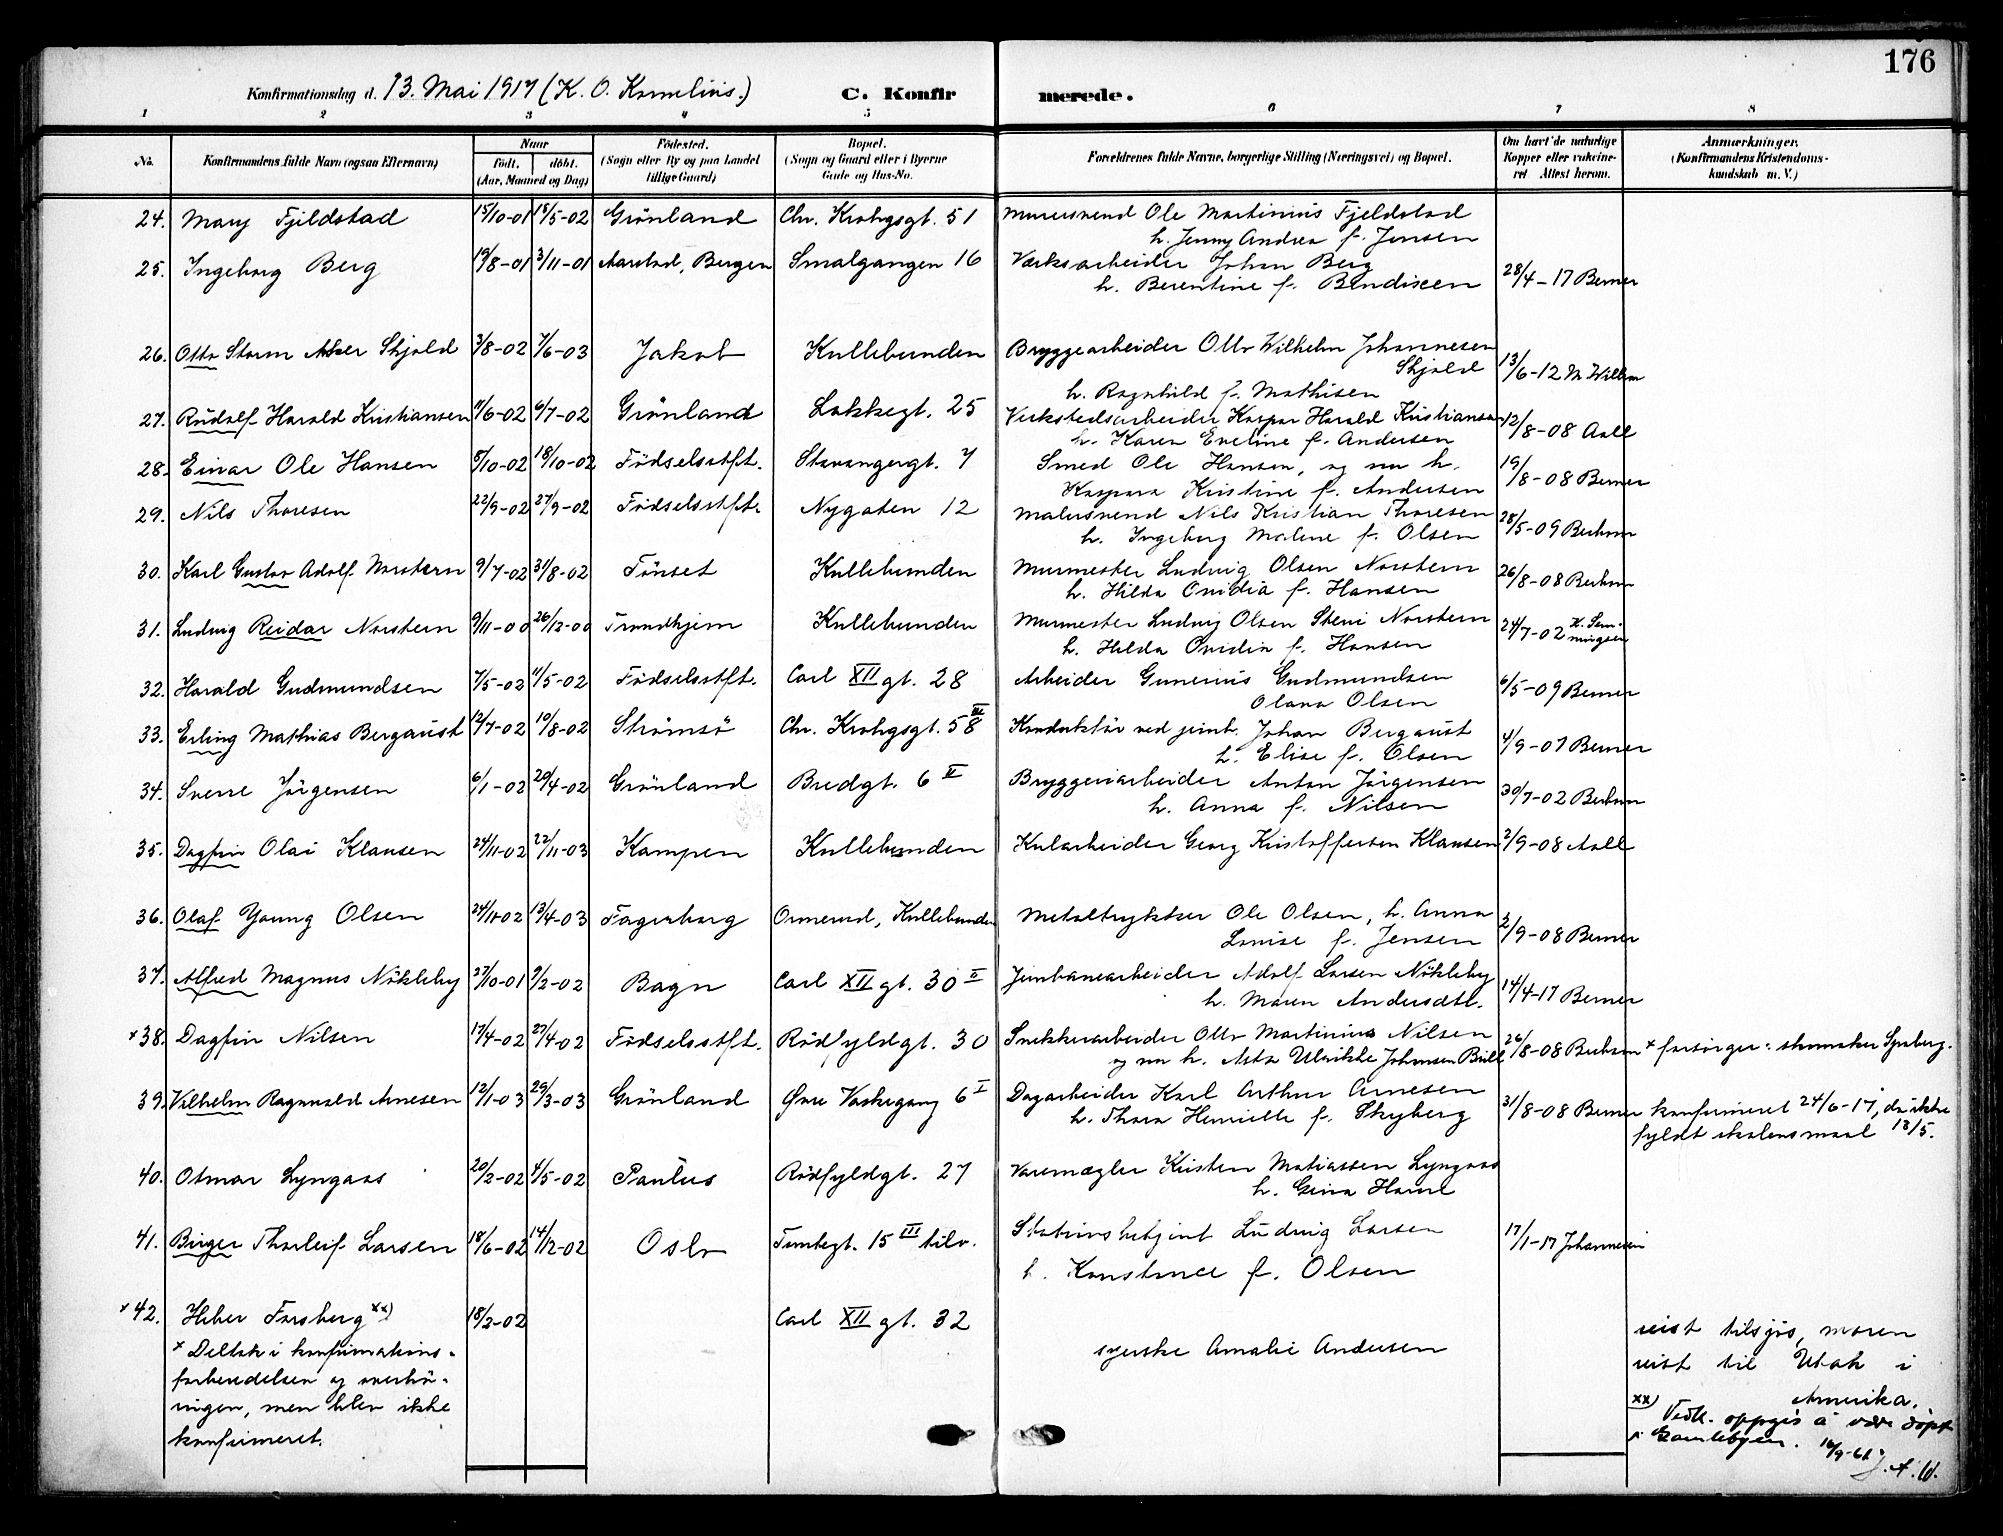 176
Konfirmationsdag d. 13. Mai 1917 (K. O. Kornelius.) C. Konfirmerede.
1 2 3 4 5 6 7 8
No. Konfirmandens fulde Navn (ogsaa Efternavn) Naar født. døbt. (Aar, Maaned og Dag) Fødested. (Sogn eller By og paa Landet tillige Gaard) Bopæl. (Sogn og Gaard eller i Byerne Gade og Hus-No. Forældrenes fulde Navne, borgerlige Stilling (Næringsvei) og Bopæl. Om havt de naturlige Kopper eller vakcineret Attest herom. Anmærkninger. (Konfirmandens Kristendomskundskab m. V.)
24. Mary Fjeldstad 15/10-01 18/5-02 Grönland Chr. Krohgsgt. 51 Murersvend Ole Martinius Fjeldstad
h. Jenny Andrea f. Jensen
25. Ingeborg Berg 19/8-01 3/11-01 Aarstad, Bergen Smalgangen 16 Værksarbeider Johan Berg
h. Berentine f. Bendixen 28/4-17 Berner
26. Otto Storm Skjold 3/8-02 7/6-03 Jakob Kullebunden Bryggearbeider Otto Wilhelm Johannesen
Skjold 13/6-12
h. Ragnhild f. Mathisen
27. Rudolf Harald Kristiansen 11/6-02 6/7-02 Grönland Lakkegt. 25 Verkstedsarbeider Kaspar Harald Kristiansen
h. Karen Eveline f. Andersen 12/8-08 Aall
28. Einar Ole Hansen 5/10-02 18/10-02 Födselsstft. Stavangergt. 7 Smed Ole Hansen, og nu h.
Kaspara Kristine f. Andersen 19/8-08 Berner
29. Nils Thoresen 22/9-02 27/9-02 Födselsstft. Nygaten 12 Malersvend Nils Kristian Thoresen
h. Ingeborg Malene f. Olsen 28/5-09
30. Karl Gustav Adolf Norstern 9/7-02 31/8-02 Tönset Kullebunden Murmester Ludvig Olsen Norstern
h. Hilda Ovidia f. Hansen 26/8-08
31. Ludvig Reidar Norstern 9/11-00 26/12-00 Trondhjem Kullebunden Murmester Ludvig Olsen Norstern
h. Hilda Ovidia f. Hansen 24/7-02 K. Semmingsen
32. Harald Gudmundsen 7/5-02 11/5-02 Födselsstft. Carl XII gt. 28 Arbeider Gunerius Gudmundsen
Olava Olsen 6/5-09 Berner
33. Erling Mathias Bergaust 12/7-02 10/8-02 Strömsö Chr. Krohgsgt. 58 III Konduktör ved jernb. Johan Bergaust
h. Elise f. Olsen 4/9-07 Berner
34. Sverre Jörgensen 6/1-02 20/4-02 Grönland Bredgt. 6 II Bryggeriarbeider Anton Jörgensen
h. Anna f. Nilsen 30/7-02
35. Dagfin Olai Klausen 24/11-02 22/11-03 Kampen Kullebunden Kularbeider Georg Kristoffersen Klausen 2/9-08 Aall
36. Olaf Young Olsen 24/11-02 13/4-03 Fagerborg Ormerud, Kullebunden Metaltrykker Ole Olsen, h. Anna
Lovise f. Jensen 2/9-08 Berner
37. Alfred Magnus Nökleby 27/10-01 9/2-02 Bagn Carl XII gt. 30 II Jernbanearbeider Adolf Larsen Nökleby
h. Maren Andersdtt. 14/4-17 Berner
x 38. Dagfin Nilsen 17/4-02 27/4-02 Födselsstft. Rödfyldgt. 30 Snekkerarbeider Otto Martinius Nilsen
og nu h. Asta Ulrikke Johansen Büll 26/8-08 x forsörger: skomaker Syrberg.
39. Vilhelm Ragnvald Arnesen 12/1-03 29/3-03 Grönland Øvre Vaskegang 6 I Dagarbeider Karl Arthur Arnesen
h. Thora Henriette f. Skyberg 31/8-08 Berner konfirmeret 24/6-17, da ikke
fyldt skolens maal 13/5.
40. Otmar Lyngaas 20/2-02 4/5-02 Paulus Rödfyldgt. 27 Varemægler Kristen Matiassen Lyngaas
h. Gina
41. Birger Thorleif Larsen 18/6-02 14/12-02 Oslo Tomtegt. 15 III tilv. Stationsbetjent Ludvig Larsen 17/1-17 Johannesen
h. Konstance f. Olsen
x 42. Heber Forsberg xx) 18/2-02 Carl XII gt. 32 syerske Amalie Andersen reist tilsjös, moren
reist til Utah i
Amerika.
x Deltok i konfirmations-
forberedelsen og overhö-
ringen, men blev ikke
konfirmeret.
xx) Vedk. oppgis å være döpt
i Gamlebyen. 16/9-61
J. A. W.